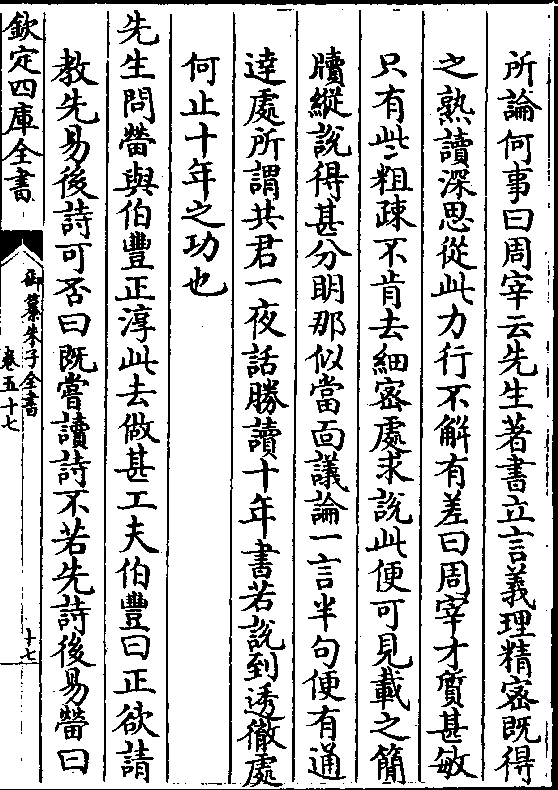 所論何事曰周宰云先生著書立言義理精密既得
之熟讀深思從此力行不解有差曰周宰才質甚敏
只有些粗疎不肯去細密處求說此便可見載之簡
牘縱說得甚分明那似當面議論一言半句便有通
達處所謂共君一夜話勝讀十年書若說到透徹處
何止十年之功也
先生問㽦與伯豐正淳此去做甚工夫伯豐曰正欲請
教先易後詩可否曰既嘗讀詩不若先詩後易㽦曰
欽定四庫全書
御纂朱子全書
卷五十七
十七